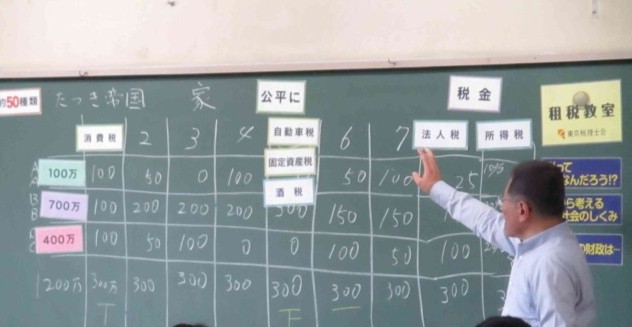 約50種類
たつき帝国 家 公平に 税金
租税教室
東京税理士会
消費税 2 3 4 自動車税 6 7 法人税 所得税
固定資産税
酒税
100万 100 50 0 100 50 100 25
700万 100 200 200 200 300 150 150
400万 100 50 100 0 0 100 50 100
1200万 300万 300 300 300 300 300 300 300
って
なんだろう!?
から考える
社会のしくみ
の財政は…